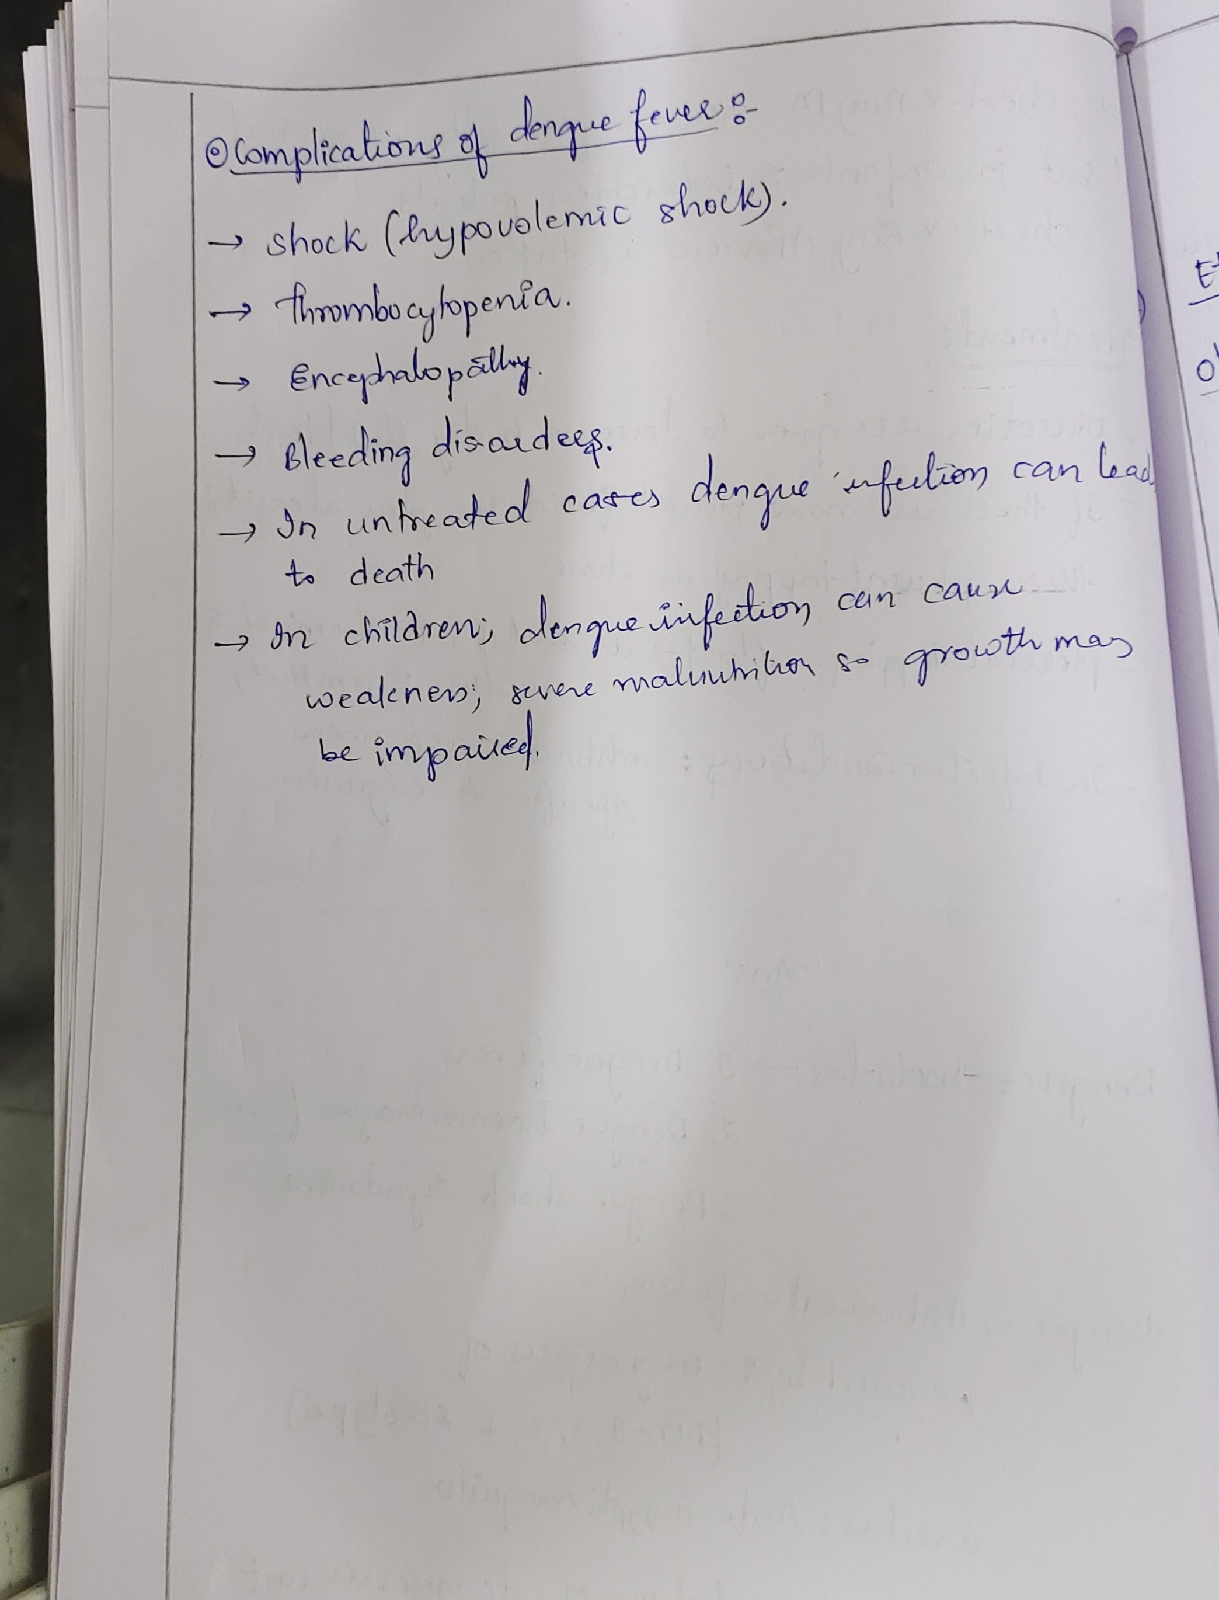 ⊙ Complications of dengue fever :-
→ shock (hypovolemic shock).
→ thrombocytopenia.
→ Encephalopathy.
→ Bleeding disorders.
→ In untreated cases dengue infection can lead
to death
→ In children; dengue infection can cause
weakness; severe malnutrition so growth may
be impaired.